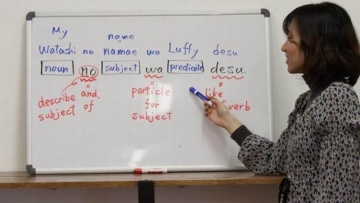 My name
Watashi no namae wa Luffy desu
noun no subject wa predicate desu
describe and, particle like
subject of for verb
subject